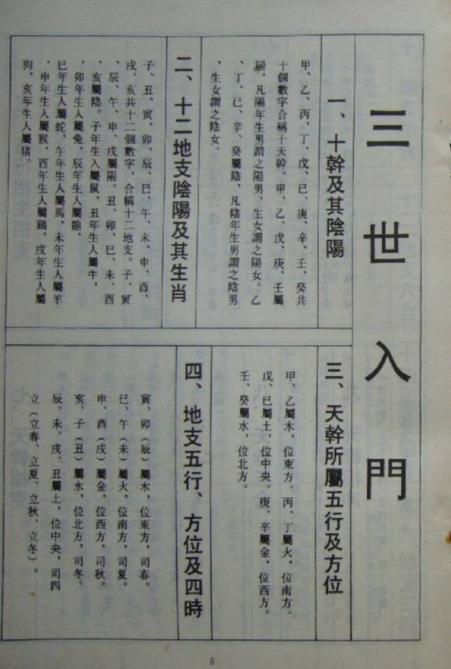 三世入門
一、十幹及其陰陽
甲、乙、丙、丁、戊、已、庚、辛、壬、癸共
十個數字合稱十天幹。甲、乙、戊、庚、壬屬
陽，凡陽年生男謂之陽男，生女謂之陽女。乙
、丁、已、辛、癸屬陰，凡陰年生男謂之陰男
、生女謂之陰女。
二、十二地支陰陽及其生肖
子、丑、寅、卯、辰、巳、午、未、申、酉、
戌、亥共十二個數字，合稱十二地支。子、寅
、辰、午、申、戌屬陽。丑、卯、巳、未、酉
、亥屬陰。子年生人屬鼠，丑年生人屬牛，
、卯年生人屬兔，辰年生人屬龍，
巳年生人屬蛇，午年生人屬馬，未年生人屬羊
、申年生人屬猴，酉年生人屬鷄，戌年生人屬
狗，亥年生人屬猪。
三、天幹所屬五行及方位
甲、乙屬木，位東方。丙、丁屬火，位南方。
戊、已屬土，位中央。庚、辛屬金，位西方。
壬、癸屬水，位北方。
四、地支五行、方位及四時
寅、卯（辰）屬木，位東方，司春。
巳、午（未）屬火，位南方，司夏。
申、酉（戌）屬金，位西方，司秋。
亥、子（丑）屬水，位北方，司冬。
辰、未、戌、丑屬土，位中央，司四
立（立春、立夏、立秋、立冬）。
5